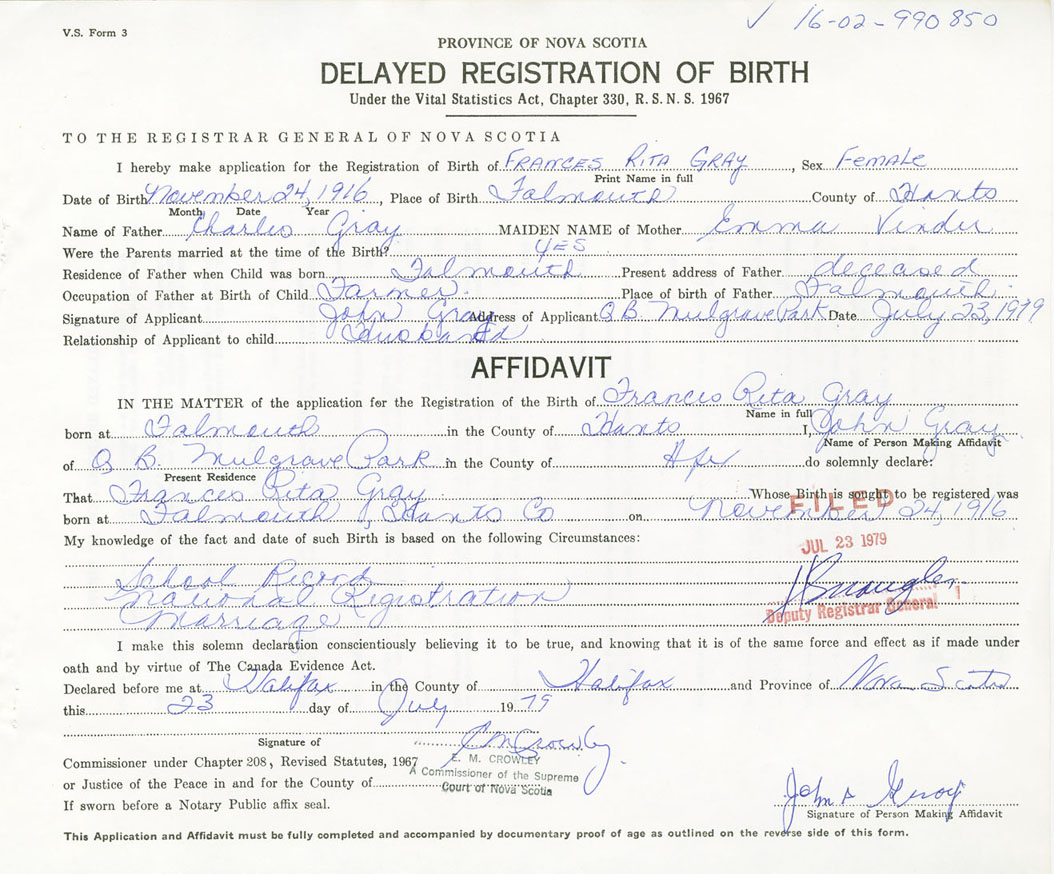 ✓ 16-02-990850
V.S. Form 3
PROVINCE OF NOVA SCOTIA
DELAYED REGISTRATION OF BIRTH
Under the Vital Statistics Act, Chapter 330, R. S. N. S. 1967
TO THE REGISTRAR GENERAL OF NOVA SCOTIA
I hereby make application for the Registration of Birth of FRANCES RITA GRAY, Sex Female
Print Name in full
Date of Birth November 24, 1916, Place of Birth Falmouth County of Hants
Month Date Year
Name of Father Charles Gray MAIDEN NAME of Mother Emma
Were the Parents married at the time of the Birth? YES
Residence of Father when Child was born Falmouth Present address of Father deceased
Occupation of Father at Birth of Child Farmer. Place of birth of Father Falmouth
Signature of Applicant John Gray Address of Applicant Q B. Mulgrave Park Date July 23, 1979
Relationship of Applicant to child Husband
AFFIDAVIT
IN THE MATTER of the application for the Registration of the Birth of Frances Rita Gray
Name in full
born at Falmouth in the County of Hants I, John Gray
Name of Person Making Affidavit
of Q B. Mulgrave Park in the County of Hfx do solemnly declare:
Present Residence
That Frances Rita Gray Whose Birth is sought to be registered was
born at Falmouth, Hants Co on November 24, 1916
FILED
My knowledge of the fact and date of such Birth is based on the following Circumstances:
JUL 23 1979
School Record
National Registration
Marriage
Deputy Registrar General
I make this solemn declaration conscientiously believing it to be true, and knowing that it is of the same force and effect as if made under
oath and by virtue of The Canada Evidence Act.
Declared before me at Halifax in the County of Halifax and Province of Nova Scotia
this 23 day of July 1979
Signature of E M Crowley
Commissioner under Chapter 208, Revised Statutes, 1967 E. M. CROWLEY
or Justice of the Peace in and for the County of A Commissioner of the Supreme
Court of Nova Scotia
If sworn before a Notary Public affix seal.
John Gray
Signature of Person Making Affidavit
This Application and Affidavit must be fully completed and accompanied by documentary proof of age as outlined on the reverse side of this form.